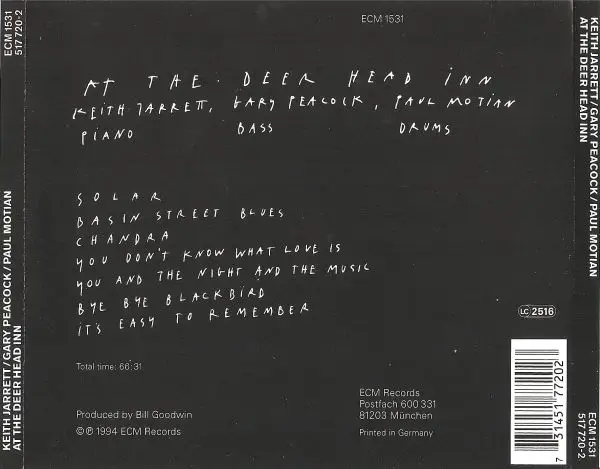 ECM 1531
517 720-2
ECM 1531
AT THE DEER HEAD INN
KEITH JARRETT, GARY PEACOCK, PAUL MOTIAN
PIANO BASS DRUMS
SOLAR
BASIN STREET BLUES
CHANDRA
YOU DON'T KNOW WHAT LOVE IS
YOU AND THE NIGHT AND THE MUSIC
BYE BYE BLACKBIRD
IT'S EASY TO REMEMBER
Total time: 66:31
Produced by Bill Goodwin
© ℗ 1994 ECM Records
ECM Records
Postfach 600 331
81203 München
Printed in Germany
LC 2516
7 31451 77202
KEITH JARRETT/GARY PEACOCK/PAUL MOTIAN
AT THE DEER HEAD INN
KEITH JARRETT/GARY PEACOCK/PAUL MOTIAN
AT THE DEER HEAD INN
ECM 1531
517 720-2